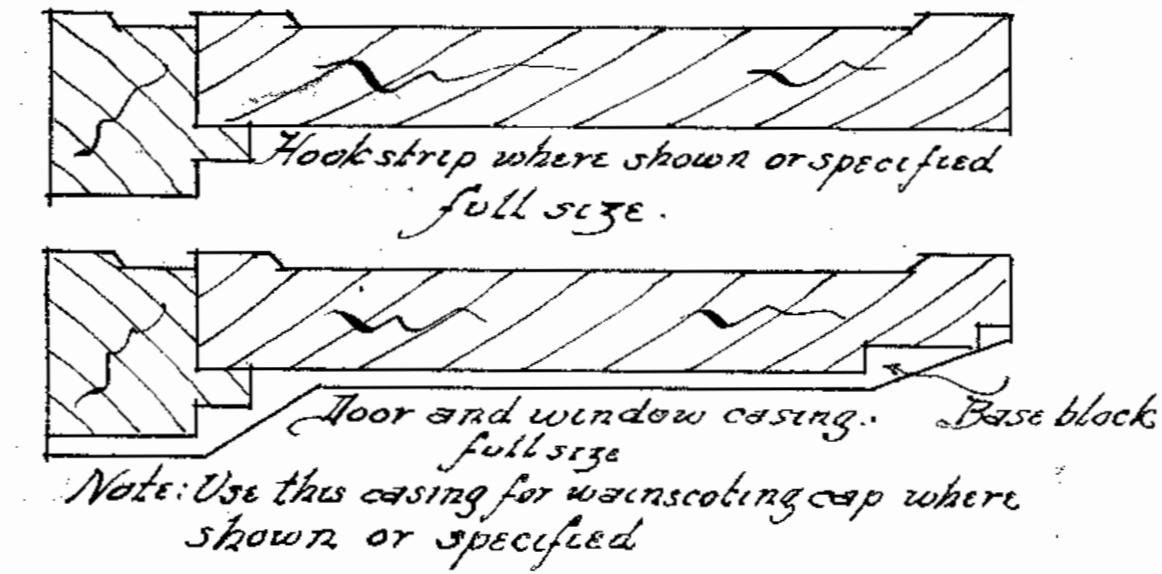 Hook strip where shown or specified
full size.
Door and window casing.
full size
Base block
Note: Use this casing for wainscoting cap where
shown or specified